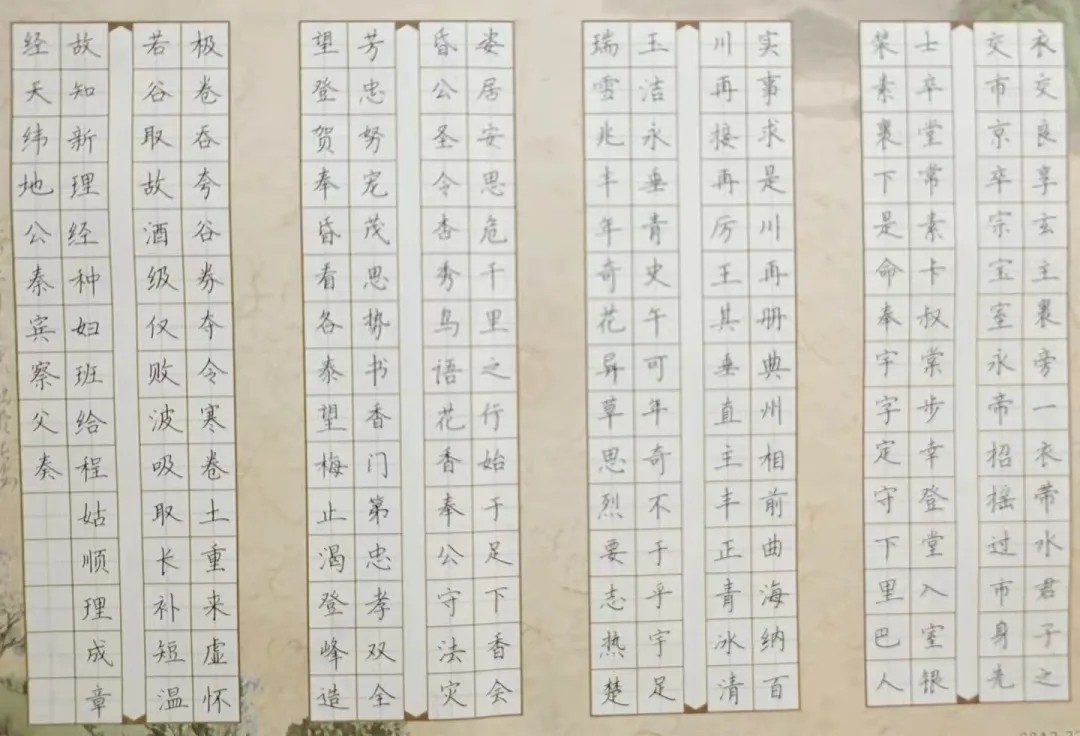 衣交良享玄主裹旁一衣带水君子之
交市京卒宗宝室永帝招摇过市身先
士卒堂常素卡叔棠步幸登堂入室银
装素裹下是命奉宇字定守下里巴人
实事求是川再册典州相前曲海纳百
川再接再厉王其垂直主丰正青冰清
玉洁永垂青史午可年奇不于乎宇足
瑞雪兆丰年奇花异草思烈要志热楚
姿居安思危千里之行始于足下香会
昏公圣令杏秀鸟语花香奉公守法灾
芳忠努宠茂思势书香门第忠孝双全
望登贺奉昏看各泰望梅止渴登峰造
极卷吞夸谷券夺令寒卷土重来虚怀
若谷取故酒级仅败波吸取长补短温
故知新理经种妇班给程姑顺理成章
经天纬地公秦宾察父奏